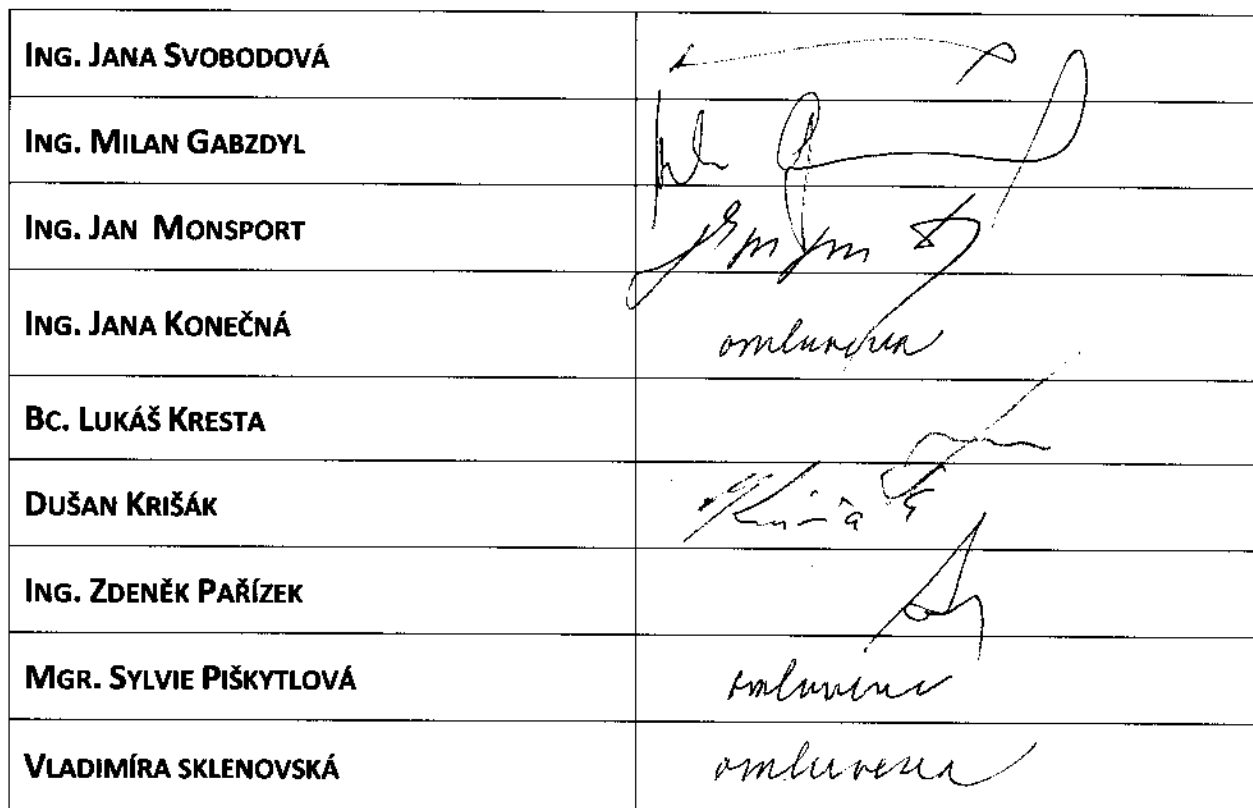 ING. JANA SVOBODOVÁ
ING. MILAN GABZDYL
ING. JAN MONSPORT
ING. JANA KONEČNÁ omluvena
BC. LUKÁŠ KRESTA
DUŠAN KRIŠÁK Krišák
ING. ZDENĚK PAŘÍZEK
MGR. SYLVIE PIŠKYTLOVÁ omluvena
VLADIMÍRA SKLENOVSKÁ omluvena